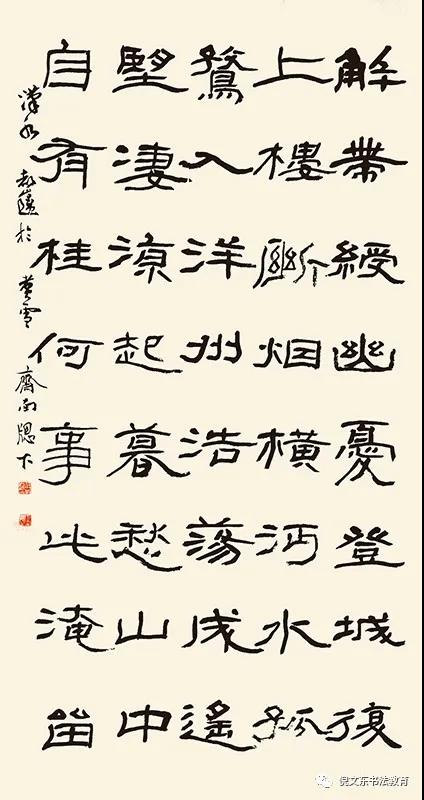 解帶緩幽憂登城復
上樓斷烟橫沔水孤
鶩入洋州浩蕩成遙
望淒涼起暮愁山中
自有桂何事此淹留
漢水於雪齋南窓下
倪文东书法教育